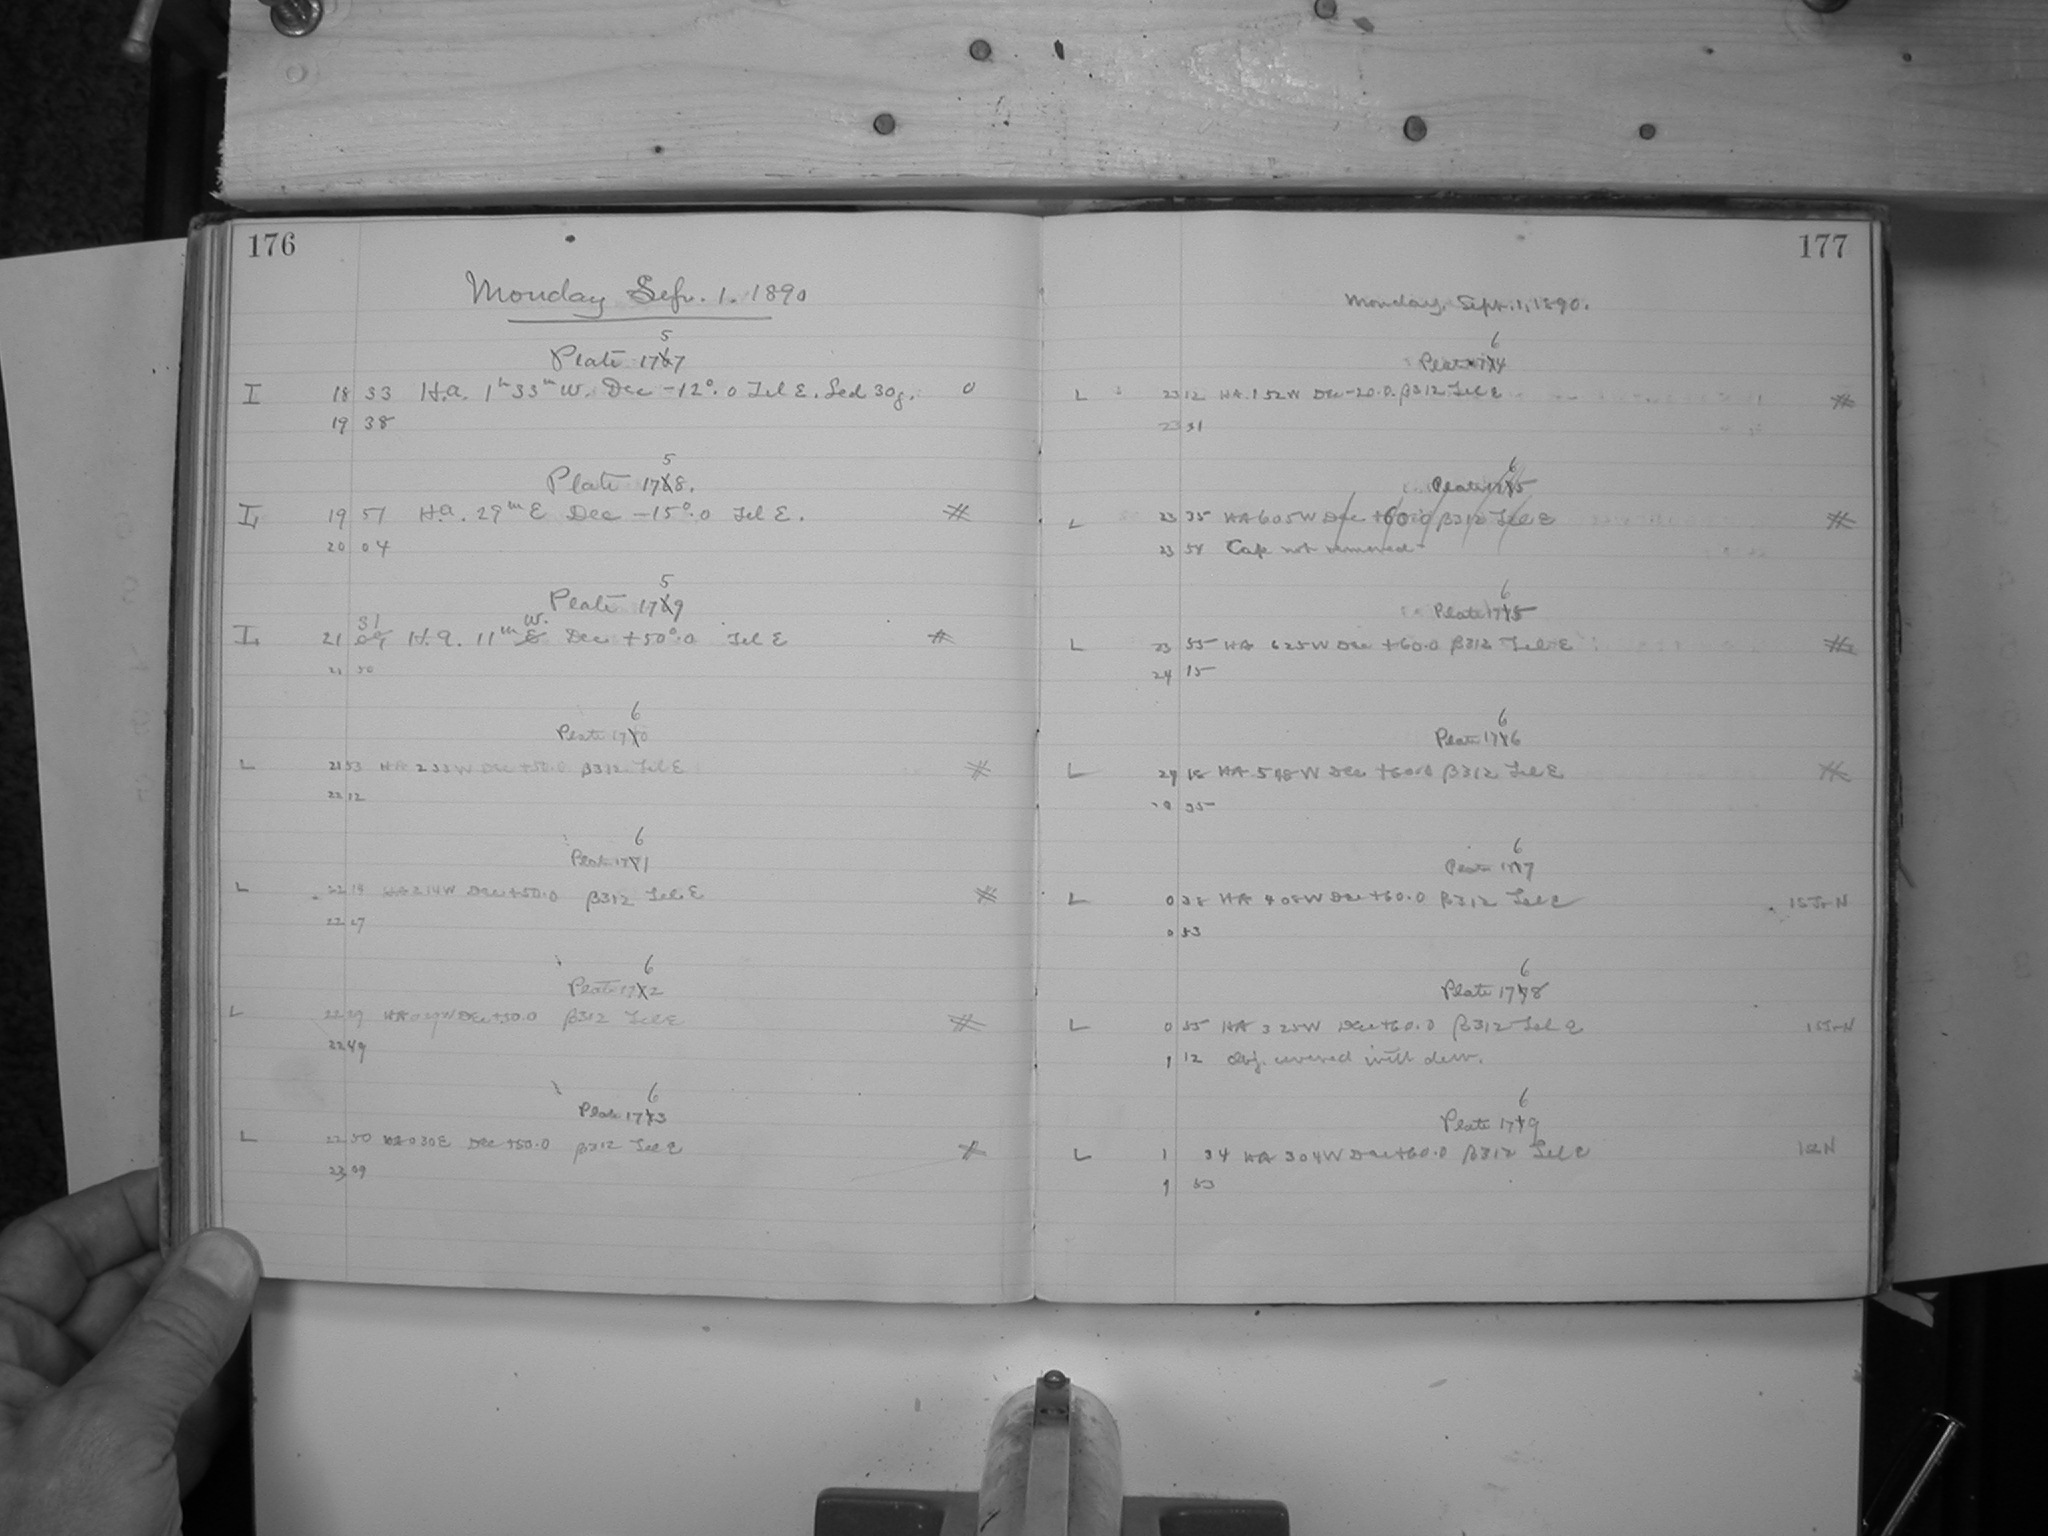 176
Monday Sep. 1. 1890
5
Plate 1767
I 18 33 H.a. 1h 33m W. Dec -12°.0 Tel E. Sed 30g. 0
19 38
5
Plate 1768.
I 19 51 H.a. 29m E Dec -15°.0 Tel E.
20 04
5
Plate 1769
31 W.
I 21 09 H.a. 11m E Dec +50°.0 Tel E
21 50
6
Plate 1770
L 21 53 HA 2 33 W Dec +50.0 β312 Tel E
22 12
6
Plate 1771
L 22 HA 2 14 W Dec +50.0 β312 Tel E
22 27
6
Plate 1772
L 22 29 HA W Dec +50.0 β312 Tel E
22 49
6
Plate 1773
L 22 50 HA 0 30 E Dec +50.0 β312 Tel E
23 09
177
Monday, Sept. 1, 1890.
6
Plate 1774
L 23 12 HA 1 52 W Dec -20.0. β312 Tel E
23 31
6
Plate 1775
L 23 35 HA 6 05 W Dec +60.0 β312 Tel E
23 54 Cap not removed
6
Plate 1775
L 23 55 HA 6 25 W Dec +60.0 β312 Tel E
24 15
6
Plate 1776
L 24 HA W Dec +60.0 β312 Tel E
35
6
Plate 1777
L 0 HA 4 05 W Dec +60.0 β312 Tel E
0 53
6
Plate 1778
L 0 55 HA 3 25 W Dec +60.0 β312 Tel E
1 12 Obj. covered with dew.
6
Plate 1779
L 1 34 HA 3 04 W Dec +60.0 β312 Tel E
1 53